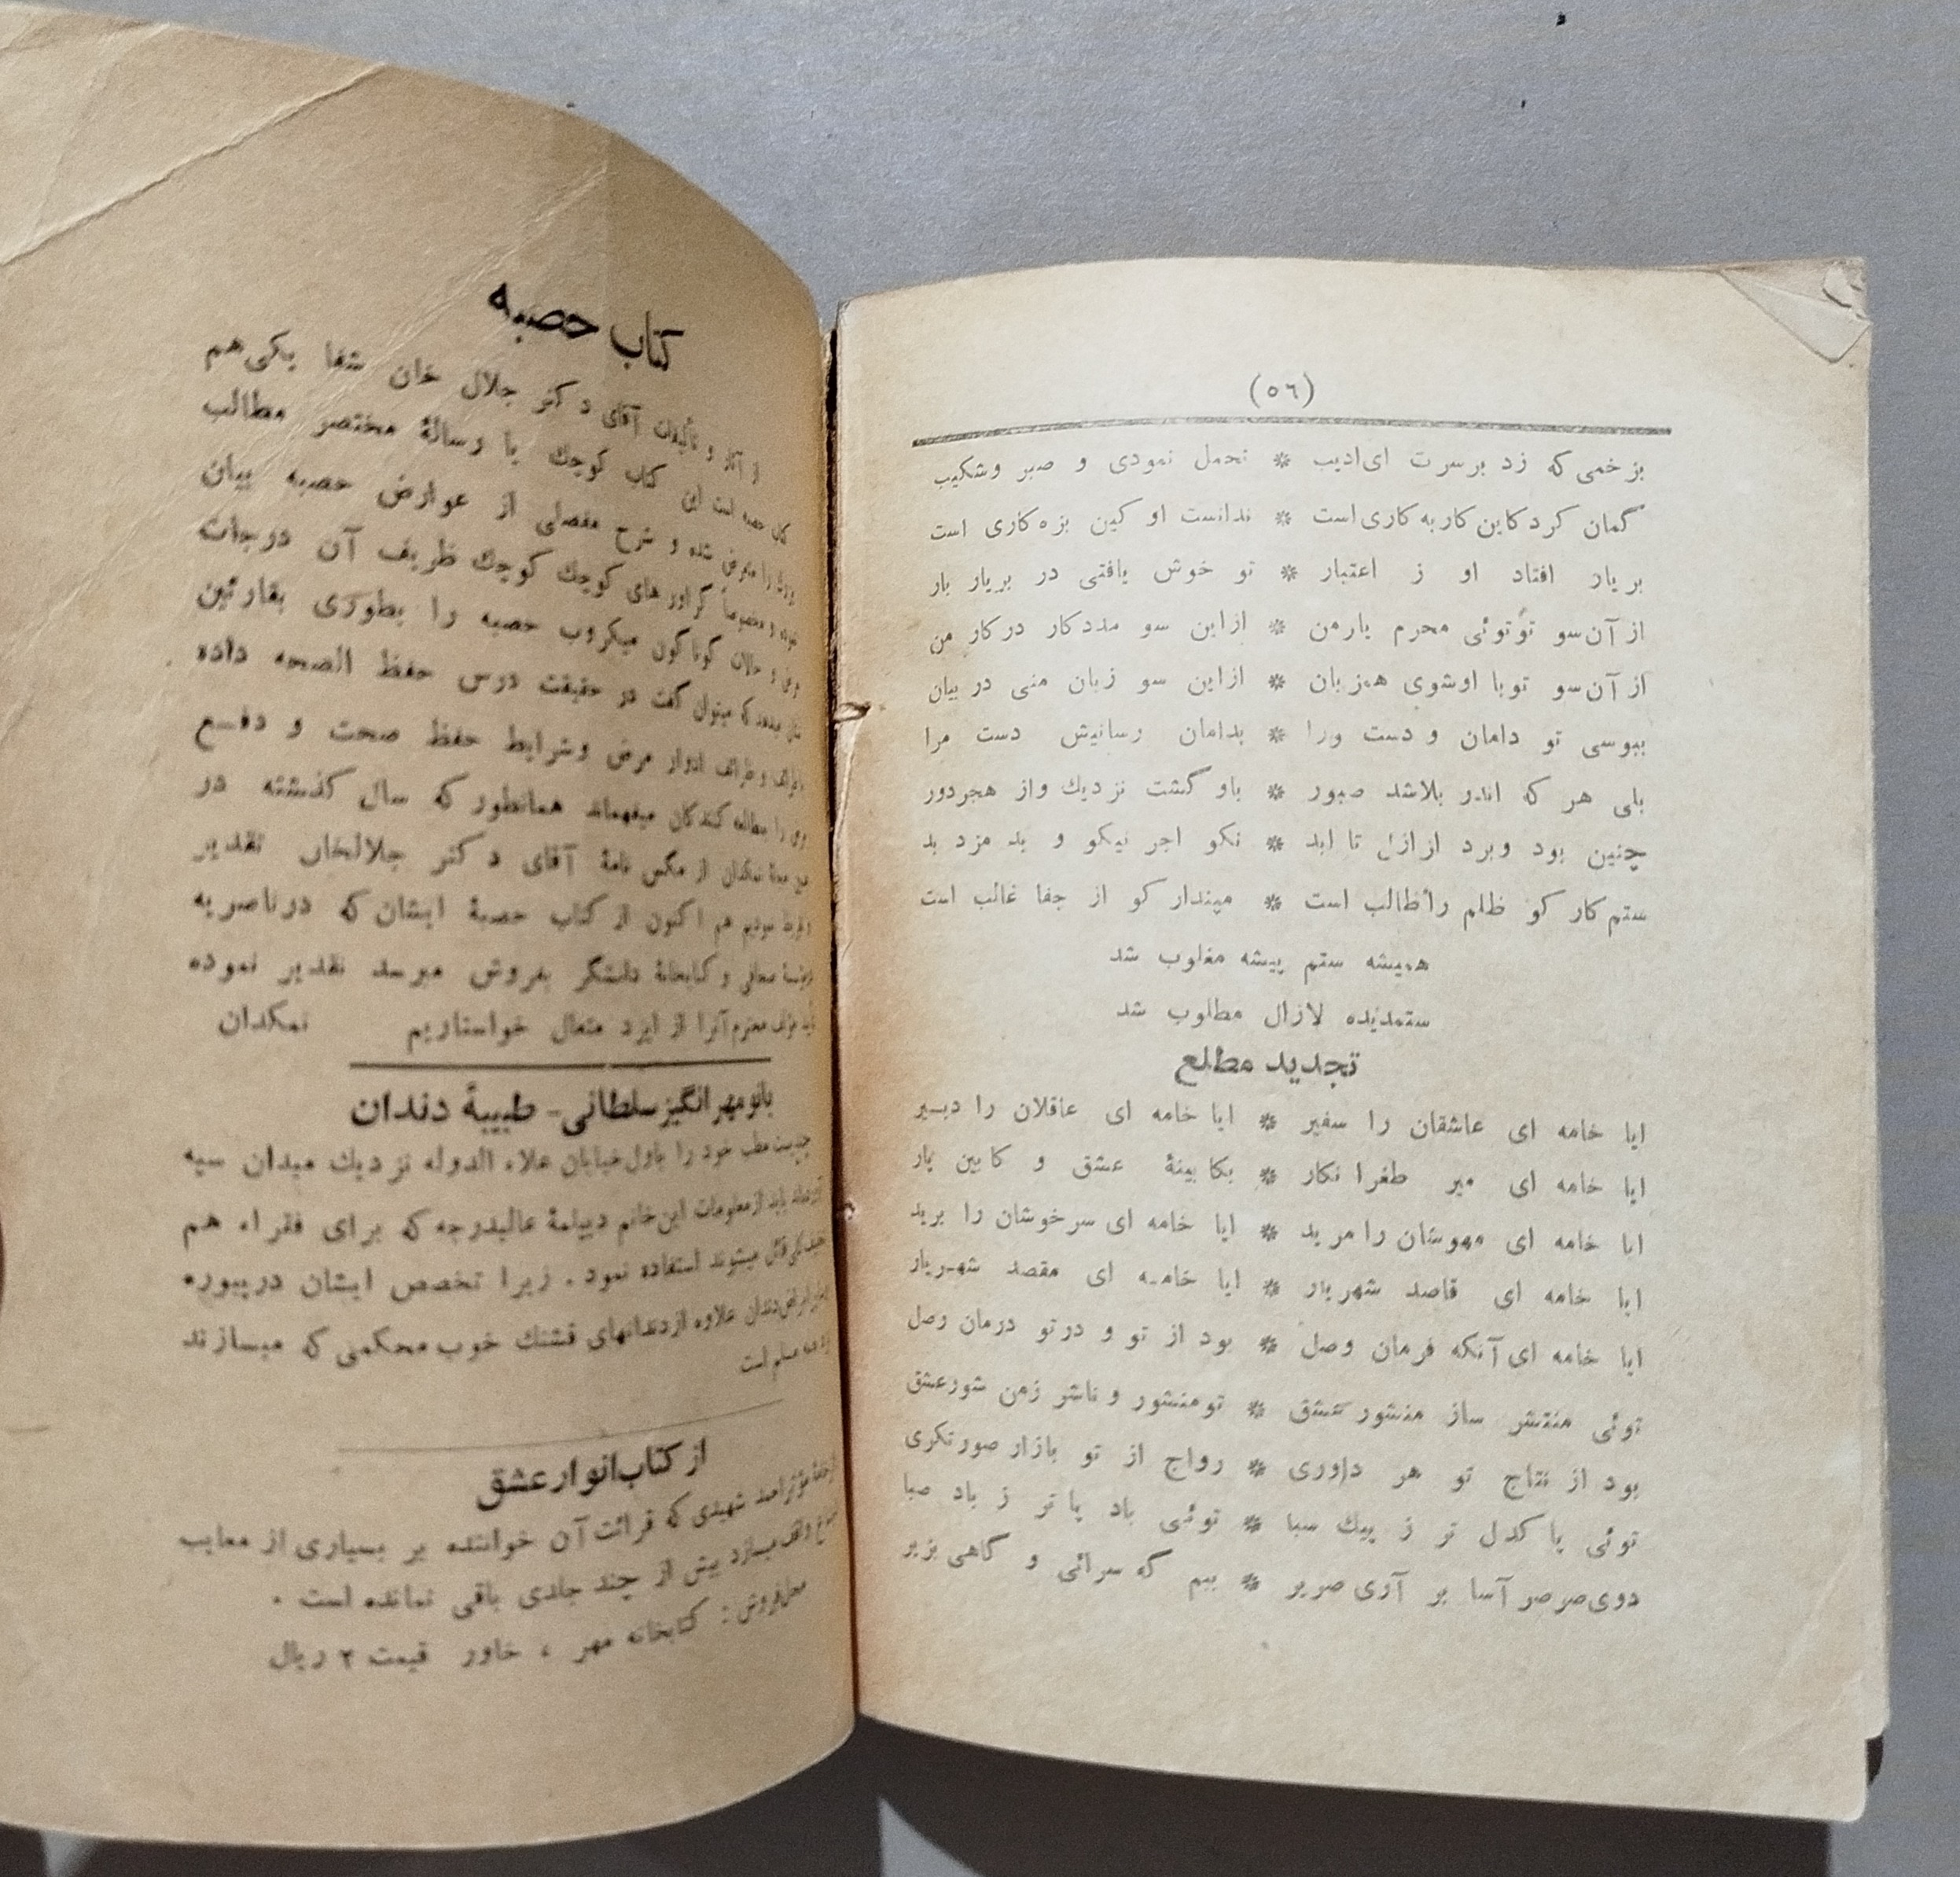 (٥٦)
بزخمی که زد برسرت ای‌ادیب * تحمل نمودی و صبر وشکیب
گمان کردکاین کاربه کاری است * ندانست او کین بزه کاری است
بریار افتاد او ز اعتبار * تو خوش یافتی در بریار بار
از آن‌سو توتوئی محرم یارمن * ازاین سو مددکار درکار من
از آن‌سو توبا اوشوی همزبان * ازاین سو زبان منی در بیان
ببوسی تو دامان و دست ورا * بدامان رسانیش دست مرا
بلی هر که اندر بلاشد صبور * باو گشت نزدیك واز هجردور
چنین بود وبرد ازازل تا ابد * نکو اجر نیکو و بد مزد بد
ستم‌کار کو ظلم راطالب است * مپندار کو از جفا غالب است
همیشه ستم پیشه مغلوب شد
ستمدیده لازال مطلوب شد
تجدید مطلع
ایا خامه ای عاشقان را سفیر * ایا خامه ای عاقلان را دبیر
ایا خامه ای میر طغرا نکار * بکابینهٔ عشق و کابین یار
ایا خامه ای مهوشان را مرید * ایا خامه ای سرخوشان را برید
ایا خامه ای قاصد شهریار * ایا خامه ای مقصد شهریار
ایا خامه ای آنکه فرمان وصل * بود از تو و درتو درمان وصل
توئی منتشر ساز منشور عشق * تومنشور و ناشر زمن شورعشق
بود از نتاج تو هر داوری * رواج از تو بازار صورتکری
توئی پاکدل تر ز پیك سبا * توئی باد پاتر ز باد صبا
دوی‌صرصر آسا بر آری صریر * ببم که سرائی و گاهی بزیر
کتاب حصبه
از آثار و تألیفات آقای دکتر جلال خان شفا یکی‌هم
کتاب حصبه است این کتاب کوچك با رسالهٔ مختصر مطالب
را متعرض شده و شرح مفصلی از عوارض حصبه بیان
نموده و مخصوصاً گراور های کوچك کوچك ظریف آن درجات
و حالات گوناگون میکروب حصبه را بطوری بقارئین
نشان میدهد که میتوان گفت در حقیقت درس حفظ الصحه داده
ادوار مرض وشرایط حفظ صحت و دفــع
را بمطالعه کنندگان میفهماند همانطور که سال گذشته در
نمکدان از مگس نامهٔ آقای دکتر جلالخان تقدیر
نمودیم هم اکنون از کتاب حصبهٔ ایشان که درناصریه
و کتابخانهٔ دانشگر بفروش میرسد تقدیر نموده
محترم آنرا از ایزد متعال خواستاریم نمکدان
بانومهرانگیزسلطانی - طبیبهٔ دندان
مطب خود را باول خیابان علاء الدوله نزدیك میدان سپه
باید ازمعلومات این‌خانم دیپلمهٔ عالیدرجه که برای فقراء هم
قائل میشوند استفاده نمود . زیرا تخصص ایشان درپیوره
دندان علاوه ازدندانهای قشنك خوب محکمی که میسازند
مسلم است
از کتاب‌انوارعشق
احمد شهیدی که قرائت آن خواننده بر بسیاری از معایب
واقف میسازد بیش از چند جلدی باقی نمانده است .
محل‌فروش : کتابخانه مهر ، خاور قیمت ۲ ریال